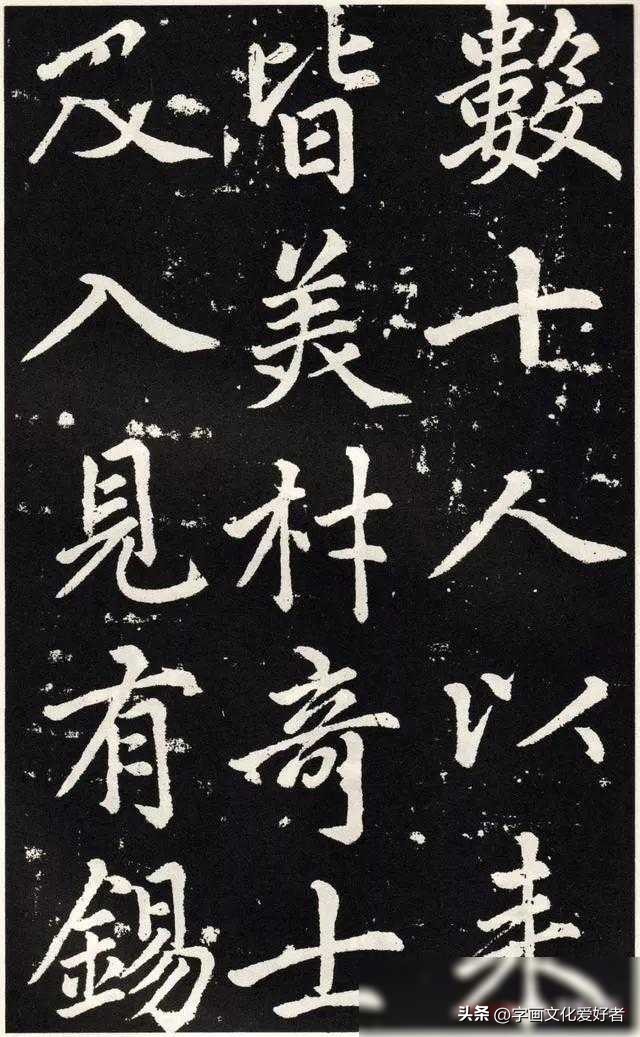 數十人以来
皆美材奇士
及入見有錫
头条 @字画文化爱好者